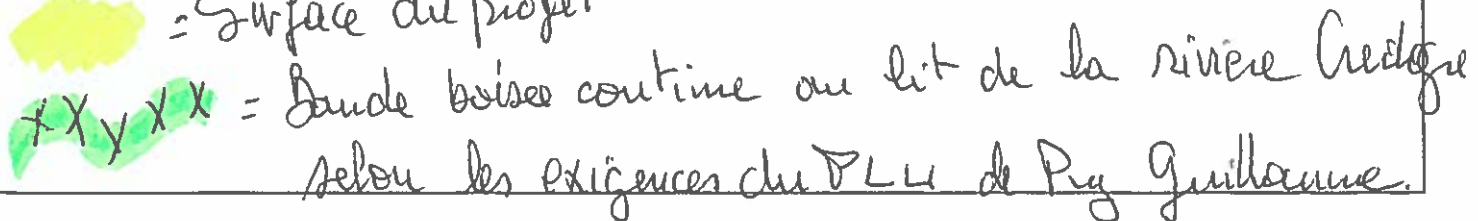 = Surface du projet
XXyXX = Bande boisée continue au lit de la rivière Credogne
selon les exigences du PLU de Puy Guillaume.